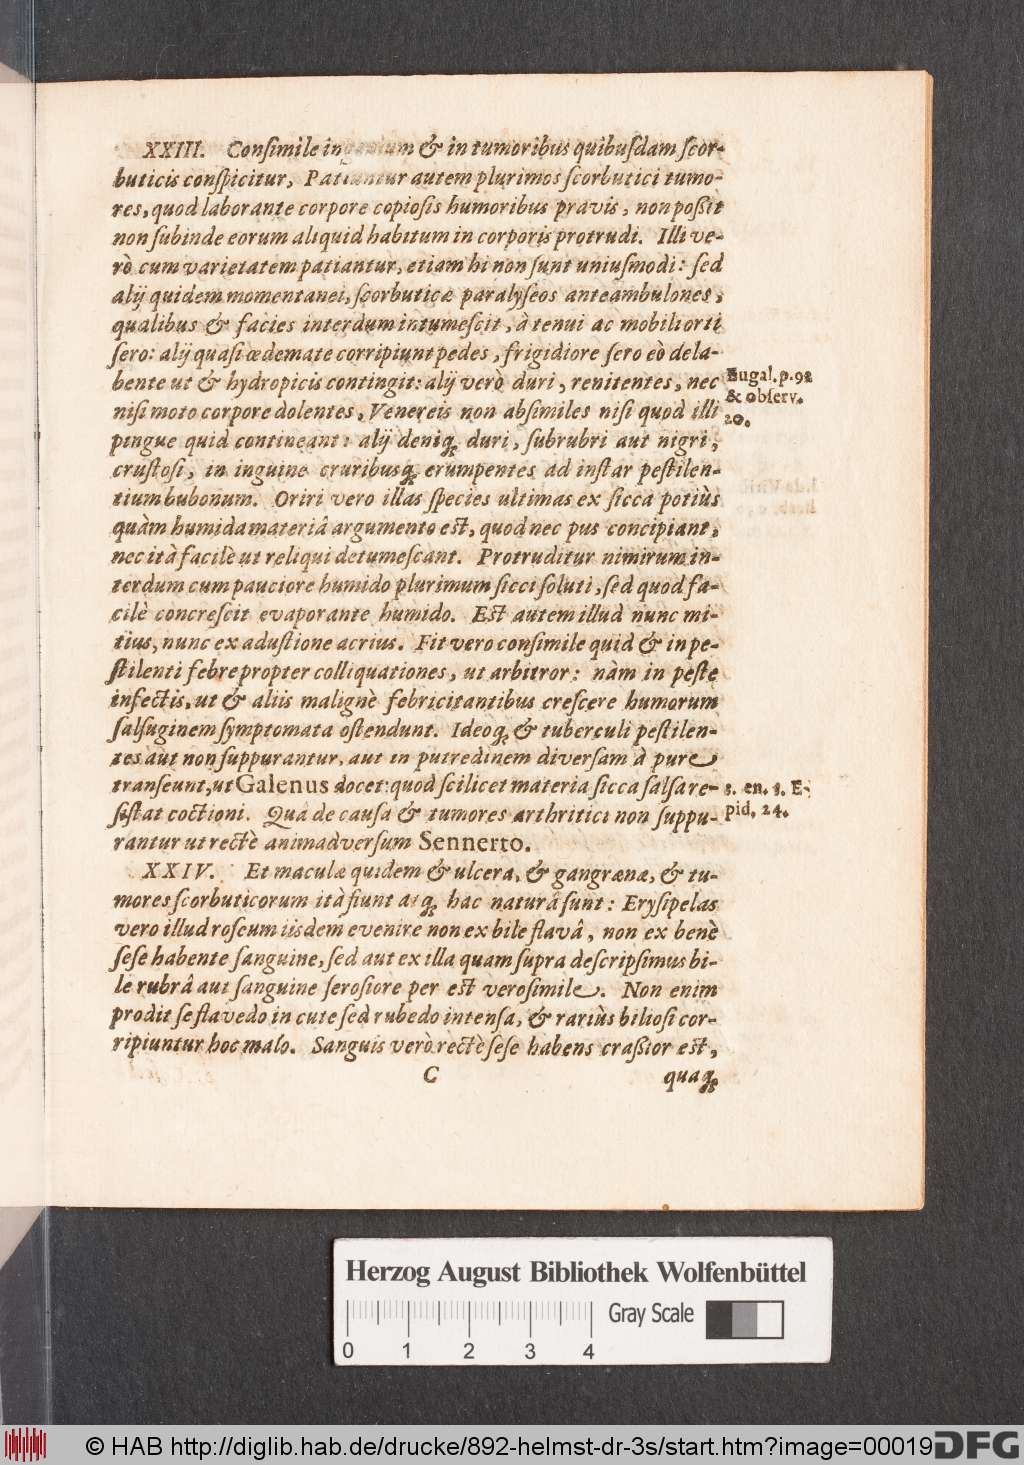 XXIII. Conſimile ingenium & in tumoribus quibuſdam ſcor-
buticis conſpicitur, Patiuntur autem plurimos ſcorbutici tumo-
res, quod laborante corpore copioſis humoribus pravis, non poßit
non ſubinde eorum aliquid habitum in corporis protrudi. Illi ve-
rò cum varietatem patiantur, etiam hi non ſunt uniuſmodi: ſed
alij quidem momentanei, ſcorbuticæ paralyſeos anteambulones,
qualibus & facies interdum intumeſcit, à tenui ac mobili orti
ſero: alij quaſi œdemate corripiunt pedes, frigidiore ſero eò dela-
bente ut & hydropicis contingit: alij verò duri, renitentes, nec
niſi moto corpore dolentes, Venereis non abſimiles niſi quod illi
pingue quid contineant: alij deniq; duri, ſubrubri aut nigri,
cruſtoſi, in inguine cruribusq; erumpentes ad inſtar peſtilen-
tium bubonum. Oriri vero illas ſpecies ultimas ex ſicca potiùs
quàm humida materiâ argumento eſt, quod nec pus concipiant,
nec ità facilè ut reliqui detumeſcant. Protruditur nimirum in-
terdum cum pauciore humido plurimum ſicci ſoluti, ſed quod fa-
cilè concreſcit evaporante humido. Eſt autem illud nunc mi-
tius, nunc ex aduſtione acrius. Fit vero conſimile quid & in pe-
ſtilenti febre propter colliquationes, ut arbitror: nàm in peſte
infectis, ut & aliis malignè febricitantibus creſcere humorum
ſalſuginem ſymptomata oſtendunt. Ideoq; & tuberculi peſtilen-
tes aut non ſuppurantur, aut in putredinem diverſam à pure
tranſeunt, ut Galenus docet: quod ſcilicet materia ſicca ſalſa re-
ſiſtat coctioni. Qua de cauſa & tumores arthritici non ſuppu-
rantur ut rectè animadverſum Sennerto.
Eugal. p. 92
& obſerv.
20.
3. en. 3. E-
pid. 24.
XXIV. Et maculæ quidem & ulcera, & gangrænæ, & tu-
mores ſcorbuticorum ità fiunt atq; hac naturâ ſunt: Eryſipelas
vero illud roſeum iisdem evenire non ex bile flavâ, non ex benè
ſeſe habente ſanguine, ſed aut ex illa quam ſupra deſcripſimus bi-
le rubrâ aut ſanguine ſeroſiore per eſt veroſimile. Non enim
prodit ſe flavedo in cute ſed rubedo intenſa, & rariùs bilioſi cor-
ripiuntur hoc malo. Sanguis verò rectè ſeſe habens craßior eſt,
C quaq;
Herzog August Bibliothek Wolfenbüttel
Gray Scale
0 1 2 3 4
© HAB http://diglib.hab.de/drucke/892-helmst-dr-3s/start.htm?image=00019
DFG